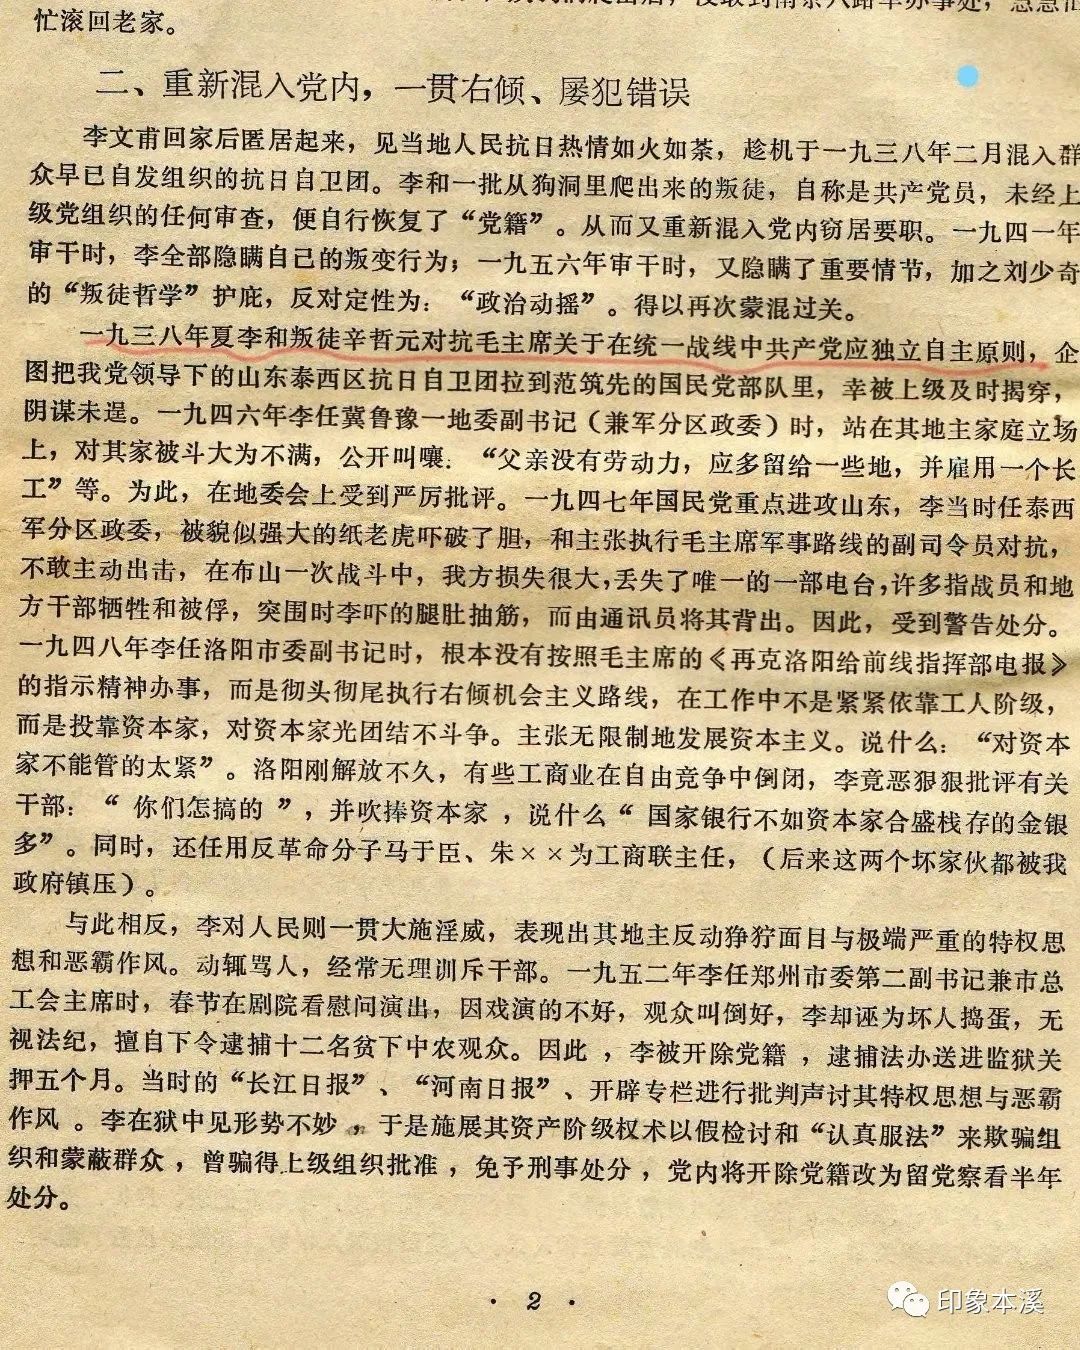 忙滚回老家。
二、重新混入党内，一贯右倾、屡犯错误
李文甫回家后匿居起来，见当地人民抗日热情如火如荼，趁机于一九三八年二月混入群
众早已自发组织的抗日自卫团。李和一批从狗洞里爬出来的叛徒，自称是共产党员，未经上
级党组织的任何审查，便自行恢复了“党籍”。从而又重新混入党内窃居要职。一九四一年
审干时，李全部隐瞒自己的叛变行为；一九五六年审干时，又隐瞒了重要情节，加之刘少奇
的“叛徒哲学”护庇，反对定性为：“政治动摇”。得以再次蒙混过关。
一九三八年夏李和叛徒辛哲元对抗毛主席关于在统一战线中共产党应独立自主原则，企
图把我党领导下的山东泰西区抗日自卫团拉到范筑先的国民党部队里，幸被上级及时揭穿，
阴谋未逞。一九四六年李任冀鲁豫一地委副书记（兼军分区政委）时，站在其地主家庭立场
上，对其家被斗大为不满，公开叫嚷：“父亲没有劳动力，应多留给一些地，并雇用一个长
工”等。为此，在地委会上受到严厉批评。一九四七年国民党重点进攻山东，李当时任泰西
军分区政委，被貌似强大的纸老虎吓破了胆，和主张执行毛主席军事路线的副司令员对抗，
不敢主动出击，在布山一次战斗中，我方损失很大，丢失了唯一的一部电台，许多指战员和地
方干部牺牲和被俘，突围时李吓的腿肚抽筋，而由通讯员将其背出。因此，受到警告处分。
一九四八年李任洛阳市委副书记时，根本没有按照毛主席的《再克洛阳给前线指挥部电报》
的指示精神办事，而是彻头彻尾执行右倾机会主义路线，在工作中不是紧紧依靠工人阶级，
而是投靠资本家，对资本家光团结不斗争。主张无限制地发展资本主义。说什么：“对资本
家不能管的太紧”。洛阳刚解放不久，有些工商业在自由竞争中倒闭，李竟恶狠狠批评有关
干部：“你们怎搞的”，并吹捧资本家，说什么“国家银行不如资本家合盛栈存的金银
多”。同时，还任用反革命分子马于臣、朱××为工商联主任，（后来这两个坏家伙都被我
政府镇压）。
与此相反，李对人民则一贯大施淫威，表现出其地主反动狰狞面目与极端严重的特权思
想和恶霸作风。动辄骂人，经常无理训斥干部。一九五二年李任郑州市委第二副书记兼市总
工会主席时，春节在剧院看慰问演出，因戏演的不好，观众叫倒好，李却诬为坏人捣蛋，无
视法纪，擅自下令逮捕十二名贫下中农观众。因此，李被开除党籍，逮捕法办送进监狱关
押五个月。当时的“长江日报”、“河南日报”、开辟专栏进行批判声讨其特权思想与恶霸
作风。李在狱中见形势不妙，于是施展其资产阶级权术以假检讨和“认真服法”来欺骗组
织和蒙蔽群众，曾骗得上级组织批准，免予刑事处分，党内将开除党籍改为留党察看半年
处分。
· 2 ·
印象本溪